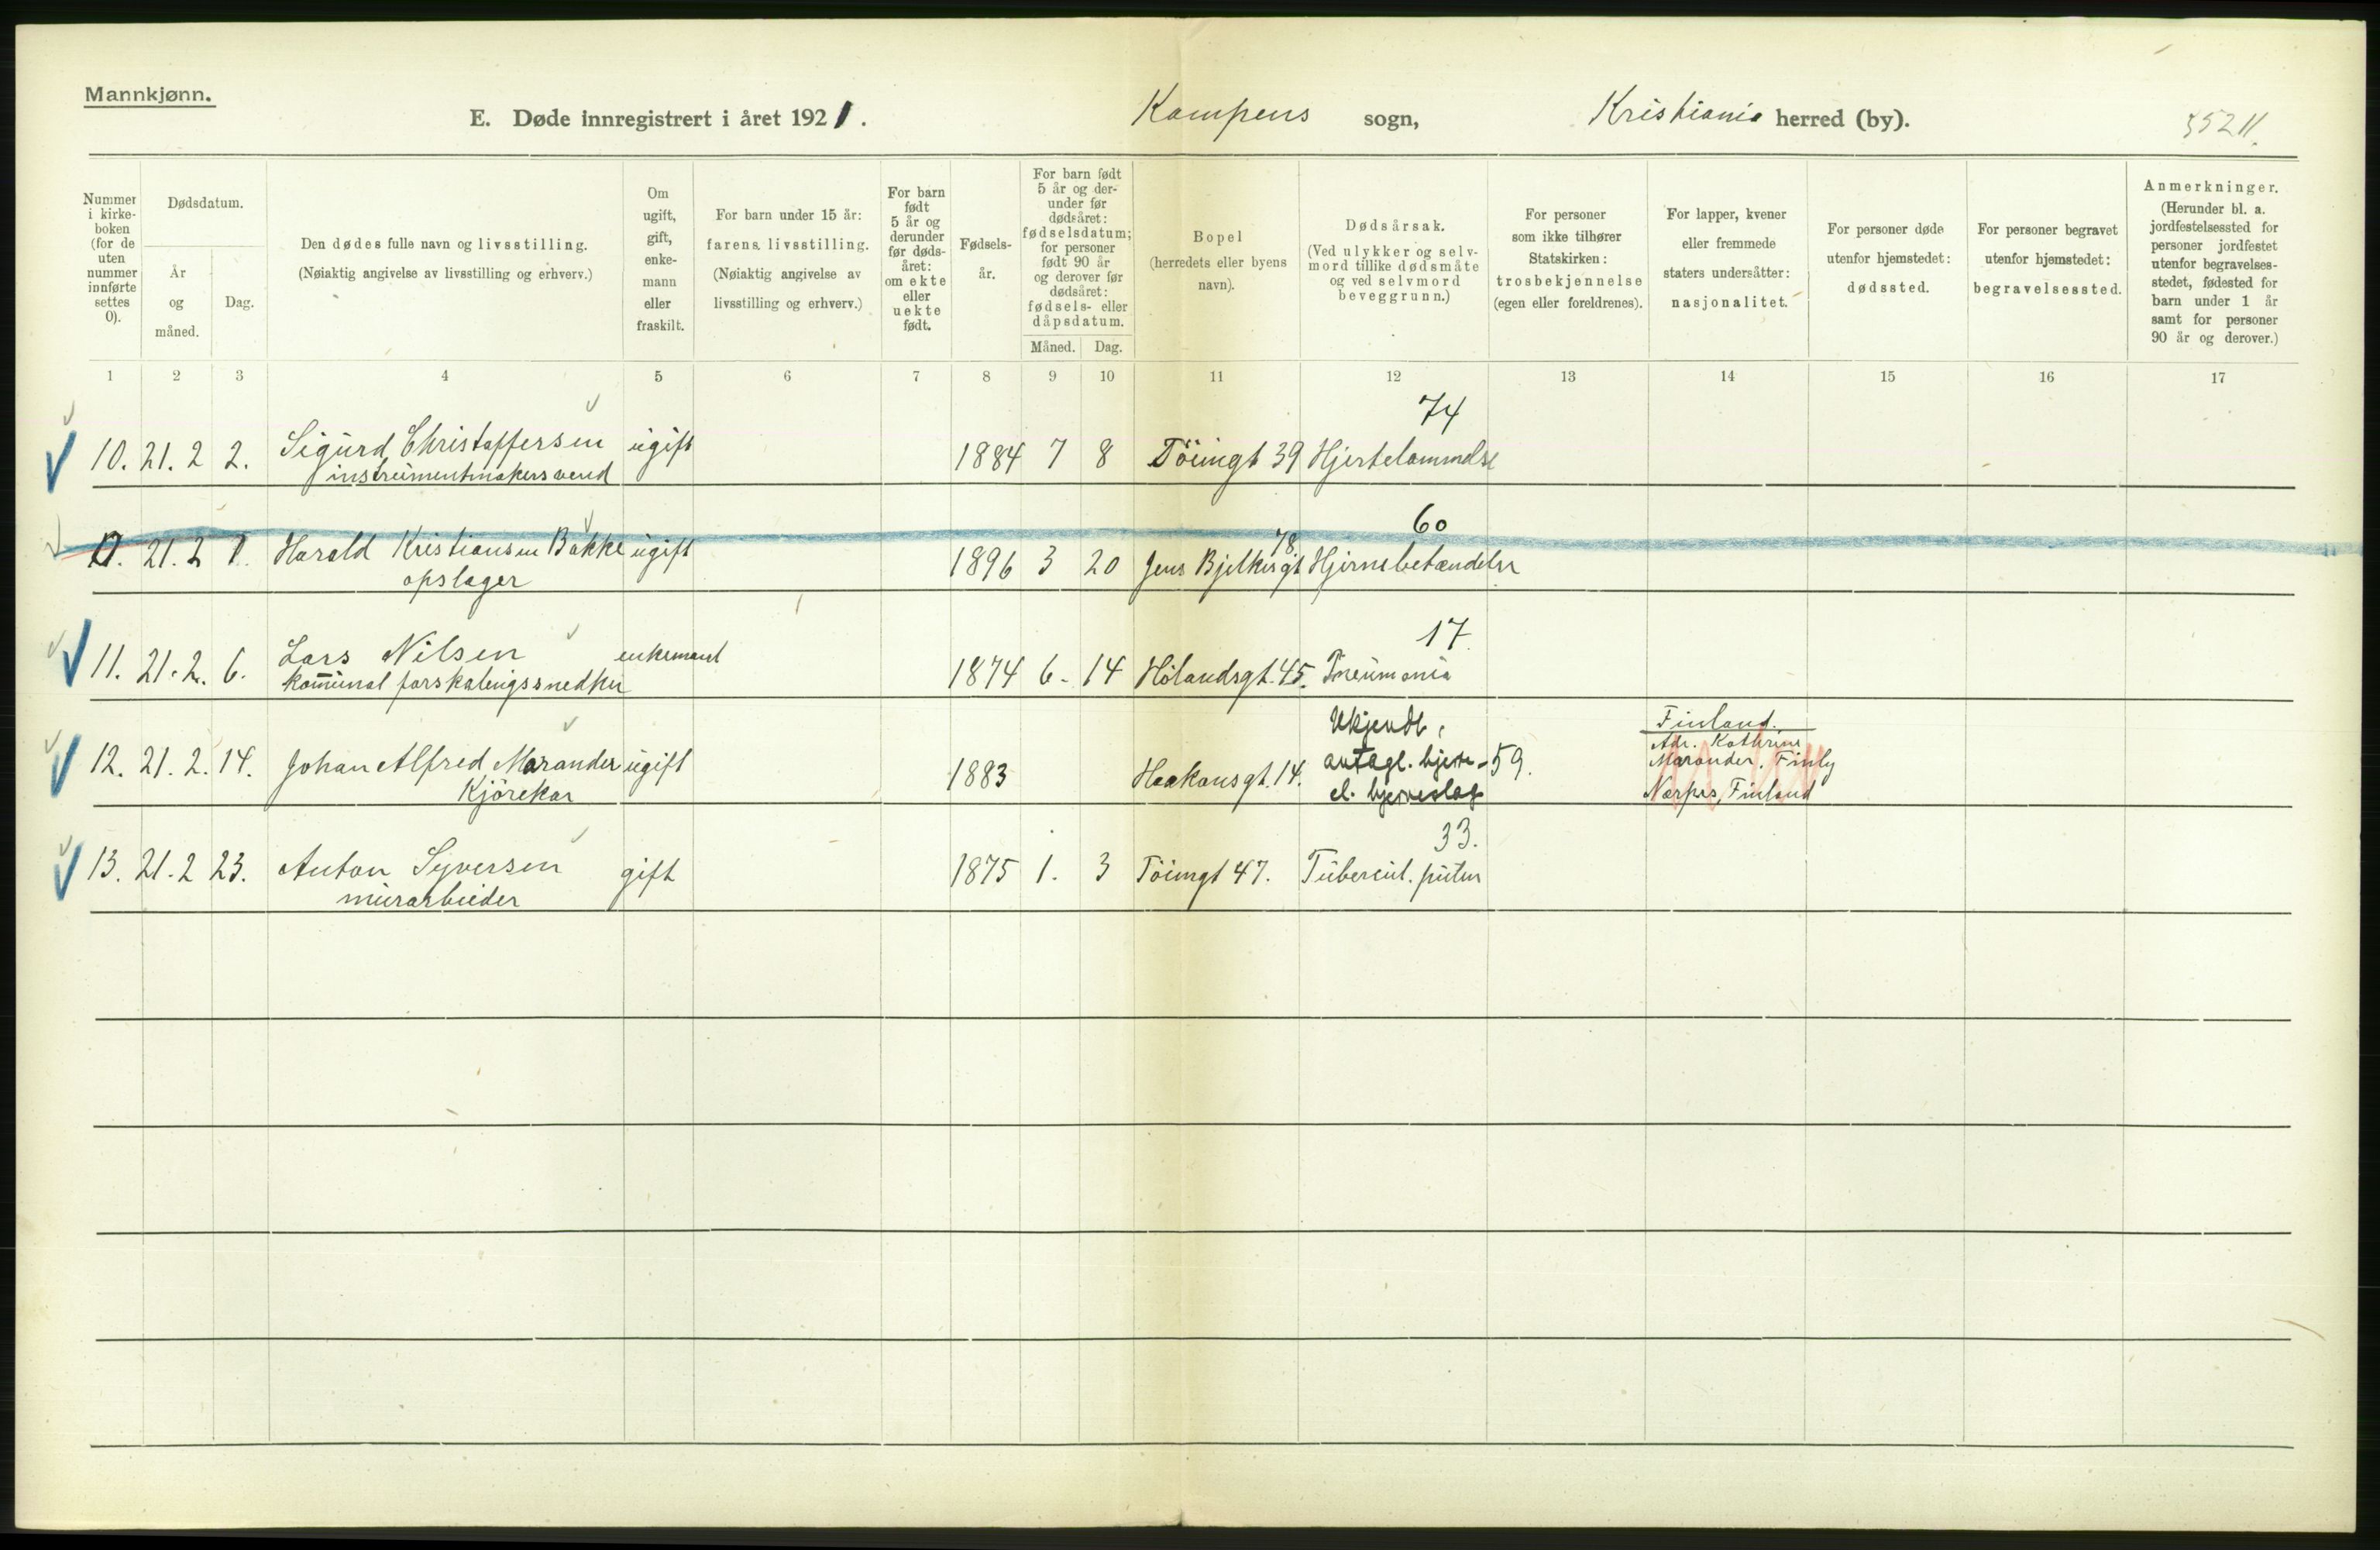 Mannkjønn.
E. Døde innregistrert i året 1921. Kampens sogn, Kristiania herred (by).
35211
Nummer i kirke-boken (for de uten nummer innførte settes 0).
Dødsdatum.
År og måned.
Dag.
Den dødes fulle navn og livsstilling.
(Nøiaktig angivelse av livsstilling og erhverv.)
Om ugift, gift, enke-mann eller fraskilt.
For barn under 15 år:
farens livsstilling.
(Nøiaktig angivelse av livsstilling og erhverv.)
For barn født 5 år og derunder før døds-året: om ekte eller uekte født.
Fødsels-år.
For barn født 5 år og der-under før dødsåret: fødselsdatum; for personer født 90 år og derover før dødsåret: fødsels- eller dåpsdatum.
Måned. Dag.
Bopel
(herredets eller byens navn).
Dødsårsak.
(Ved ulykker og selv-mord tillike dødsmåte og ved selvmord beveggrunn.)
For personer som ikke tilhører Statskirken:
trosbekjennelse
(egen eller foreldrenes).
For lapper, kvener eller fremmede staters undersåtter:
nasjonalitet.
For personer døde utenfor hjemstedet:
dødssted.
For personer begravet utenfor hjemstedet:
begravelsessted.
Anmerkninger.
(Herunder bl. a. jordfestelsessted for personer jordfestet utenfor begravelses-stedet, fødested for barn under 1 år samt for personer 90 år og derover.)
1 2 3 4 5 6 7 8 9 10 11 12 13 14 15 16 17
74
10. 21. 2 2. Sigurd Christoffersen ugift 1884 7 8 Töiengt 39 Hjertelammelse
instrumentmakersvend
60
0. 21. 2 1. Harald Kristiansen Bakke ugift 1896 3 20 Jens Bjelkesgt 78. Hjernebetændelse
opslager
17
11. 21. 2. 6. Lars Nilsen enkemand 1874 6. 14 Hølandsgt. 45. Pneumonia
komunal forskalingssnedker
12. 21. 2. 14. Johan Alfred Marander ugift 1883 Haakonsgt. 14. Ukjendt, antagl. hjerte- el. hjerneslag 59.
Kjörekar
Finland.
Adr. Kathrine
Marander, Finby
Nærpes, Finland
33.
13. 21. 2 23. Anton Syversen gift 1875 1. 3 Töiengt 47. Tubercul. pulm
murarbeider